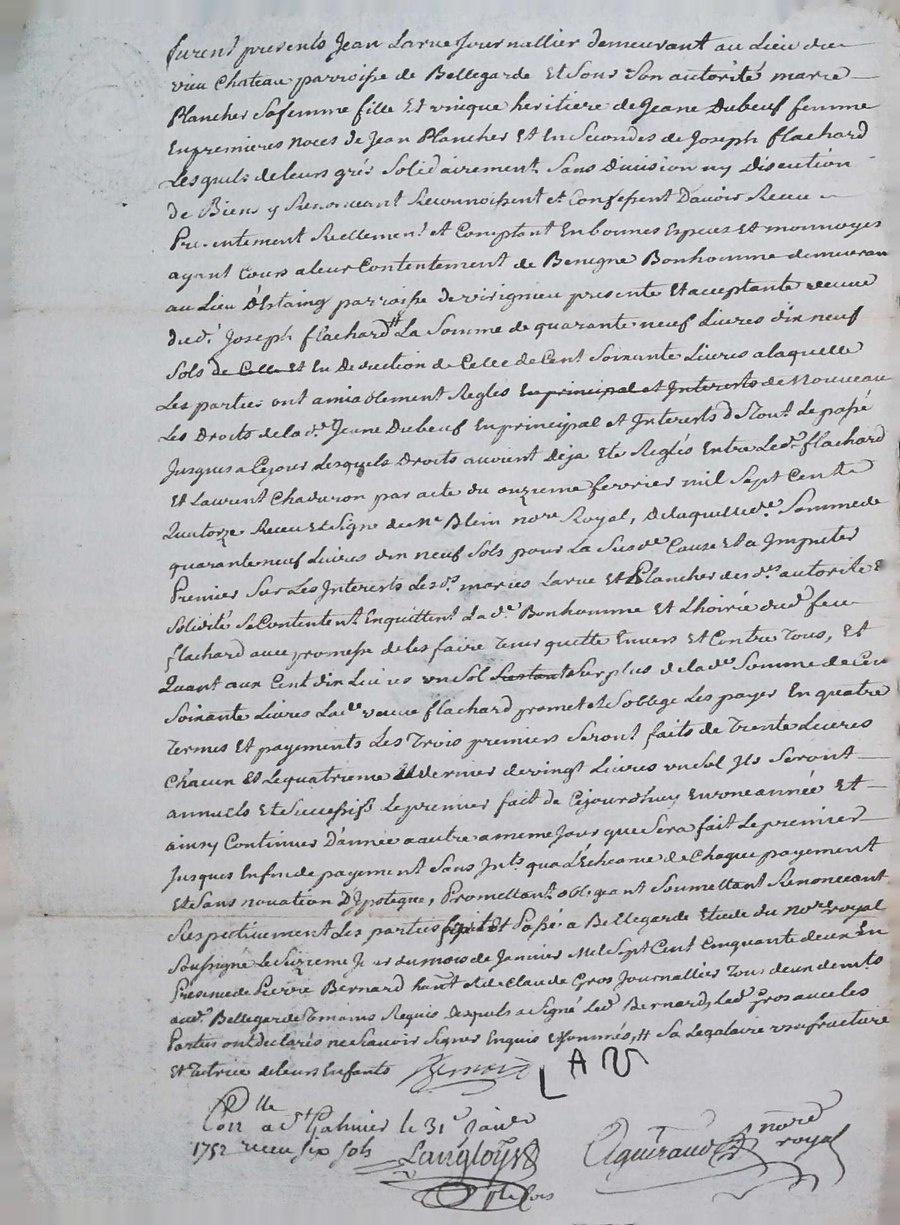 furent presents Jean Larue Journallier demeurant au Lieu du
vieu Chateau parroisse de Bellegarde Et sous son autorité marie
Plancher sa femme fille Et vnique heritiere de Jeane Dubeuf femme
En premieres noces de Jean Plancher Et En Secondes de Joseph flachard
Lesquels de leurs grés Solidairement Sans Division ny Discution
de Biens y Renonceant Reconnoissent et Confessent D'avoir Receu
Presentement Reellement et Comptant En bonnes Especes Et monnoyes
ayant Cours a leur Contentement de Benigne Bonhomme demeurant
au Lieu D'Estaing parroisse de virignieu presente Et acceptante veuve
dud.t Joseph flachard # La Somme de quarante neuf Livres dix neuf
Sols de Celle Et En Deduction de Celle de Cent Soixante Livres a laquelle
Les parties ont amiablement Reglés En principal et Interets de Nouveau
Les Droits de lad.e Jeane Dubeuf En principal et Interets de tout Le passé
Jusques a Ce jour Lesquels Droits avoient Deja Eté Reglés Entre Led.t flachard
Et Laurent Chaduron par acte du onzieme fevrier mil Sept Cent
Quatorze Receu Et Signe de Me Blein nore Royal, De laquelle d.e Somme de
quarante neuf Livres dix neuf Sols pour La Susd.e Cause Et a Imputer
Premier Sur Les Interets Les d.s mariés Larue Et Plancher des d.s autorité &
Solidité Se Contentent En quittent Lad.e Bonhomme Et L'hoirie dud.t feu
flachard avec promesse de les faire Tenir quitte Envers Et Contre Tous, Et
Quant aux Cent dix Livres vn Sol Surplus de lad.e Somme de Cent
Soixante Livres Lad.e veuve flachard promet et S'oblige Les payer En quatre
Termes Et payements Les Trois premiers Seront faits de Trente Livres
Chacun Et Le quatrieme Et dernier de vingt Livres vn Sol Ils Seront
annuels Et Successifs Le premier fait de Cejourd'huy En vne année Et
ainsy Continuer D'année a autre a meme Jour que Sera fait Le premier
Jusques En fin de payement Sans Ints. qu'a L'Echeance de Chaque payement
Et Sans novation D'Ipoteque, Promettant obligeant Soumettant Renonceant
Respectivement Les parties fait Et Passé a Bellegarde Etude du nore royal
Soussigné Le Sixieme Jour du mois de Janvier Mil Sept Cent Cinquante deux En
Presence de Pierre Bernard hant. et de Claude Gros Journallier Tous deux demts.
aud.t Bellegarde Temoins Requis Desquels a Signé Led.t Bernard, Led.t Gros avec Les
Parties ont declarés ne Scavoir Signer Enquis Et Sommés, # Sa Legataire vsufructuere
Et Tutrice de leurs Enfants Bernard LAR
Con.lle a St Galmier le 31e Janvr
1752 receu six sols Langloys
Aguiraud nore royal